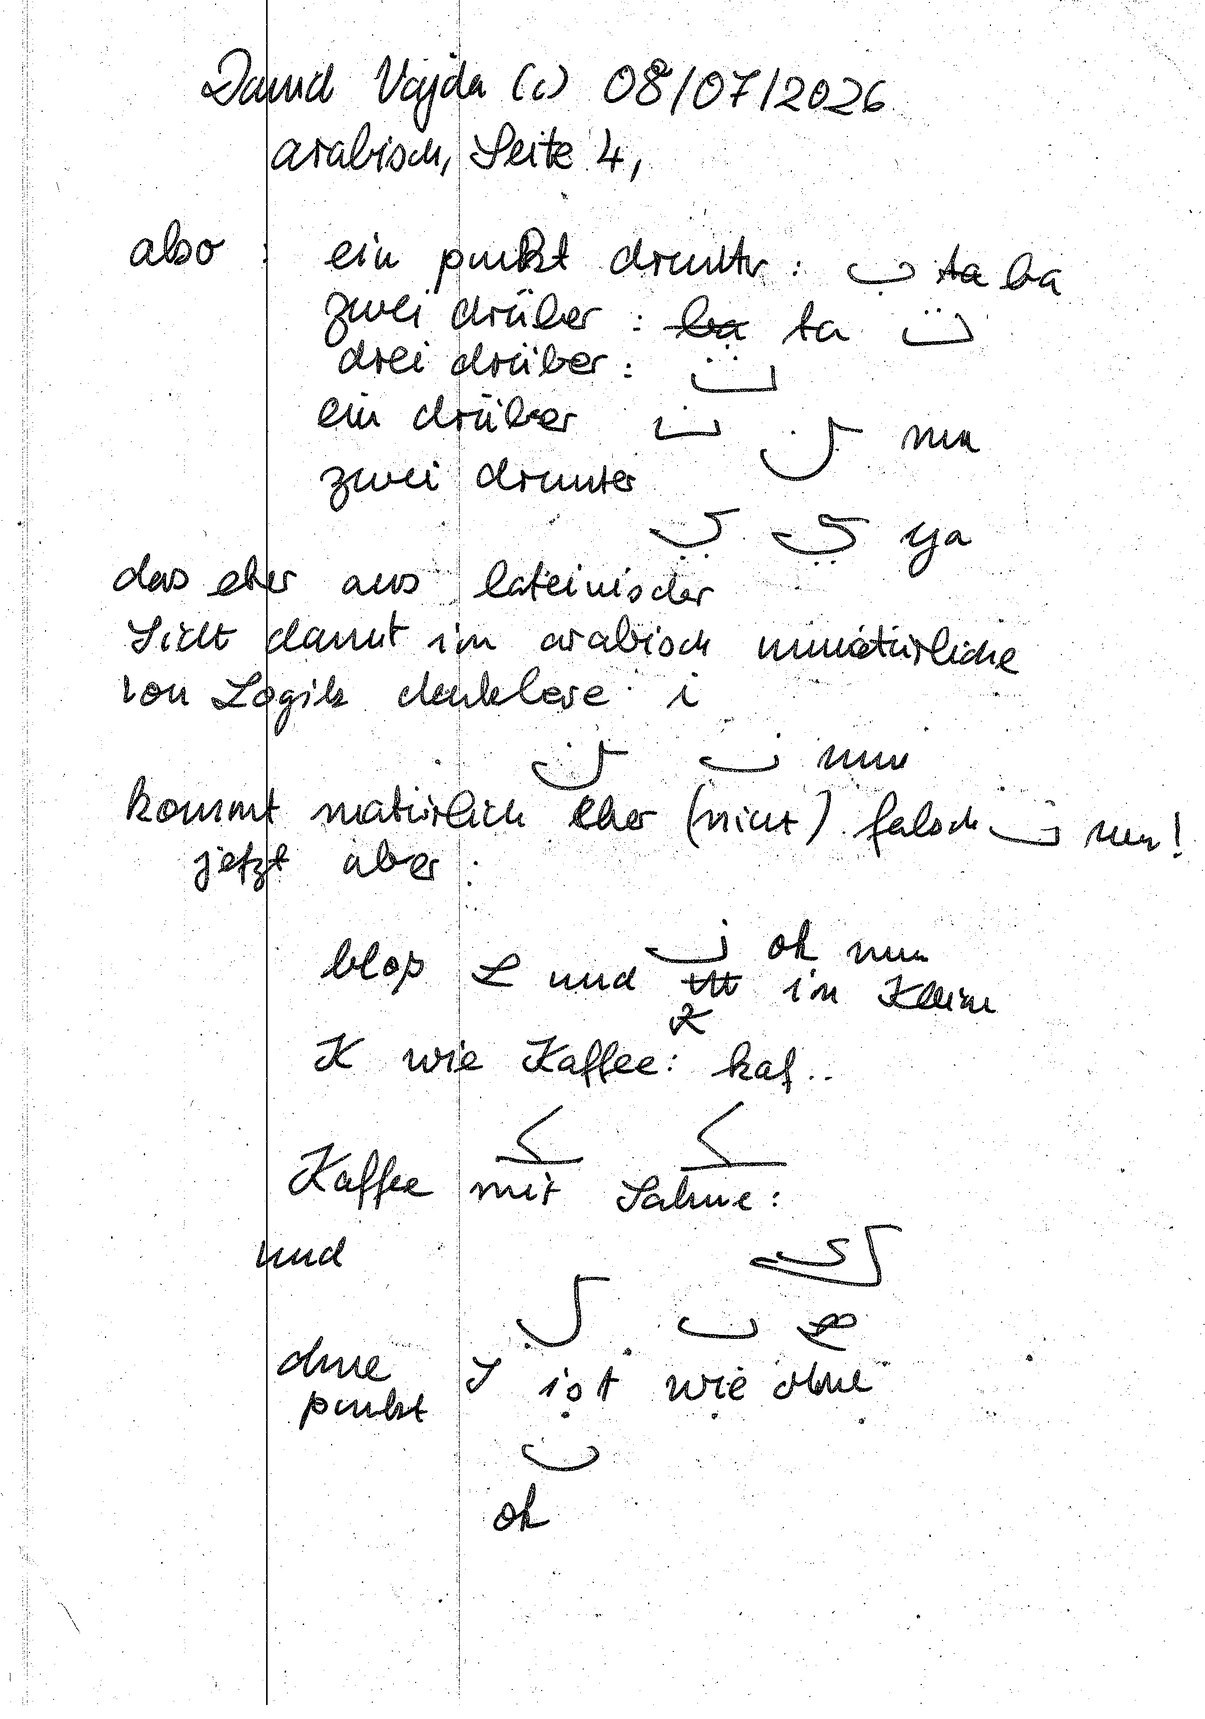 David Vajda (c) 08/07/2026
arabisch, Seite 4,
also : ein punkt drunter : ب ta ba
zwei drüber : ba ta ت
drei drüber : ث
ein drüber ن ن nun
zwei drunter
ي ي ya
das eher aus lateinischer
Sicht damit im arabisch unnatürliche
von Logik denklose i
ن ن nun
kommt natürlich eher (nicht) falsch ن nun!
jetzt aber :
bloß L und ن ok nun
in Kleine
K
K wie Kaffee: kaf..
Kaffee mit Sahne:
und
ohne J ist wie ohne
punkt
ن
ok